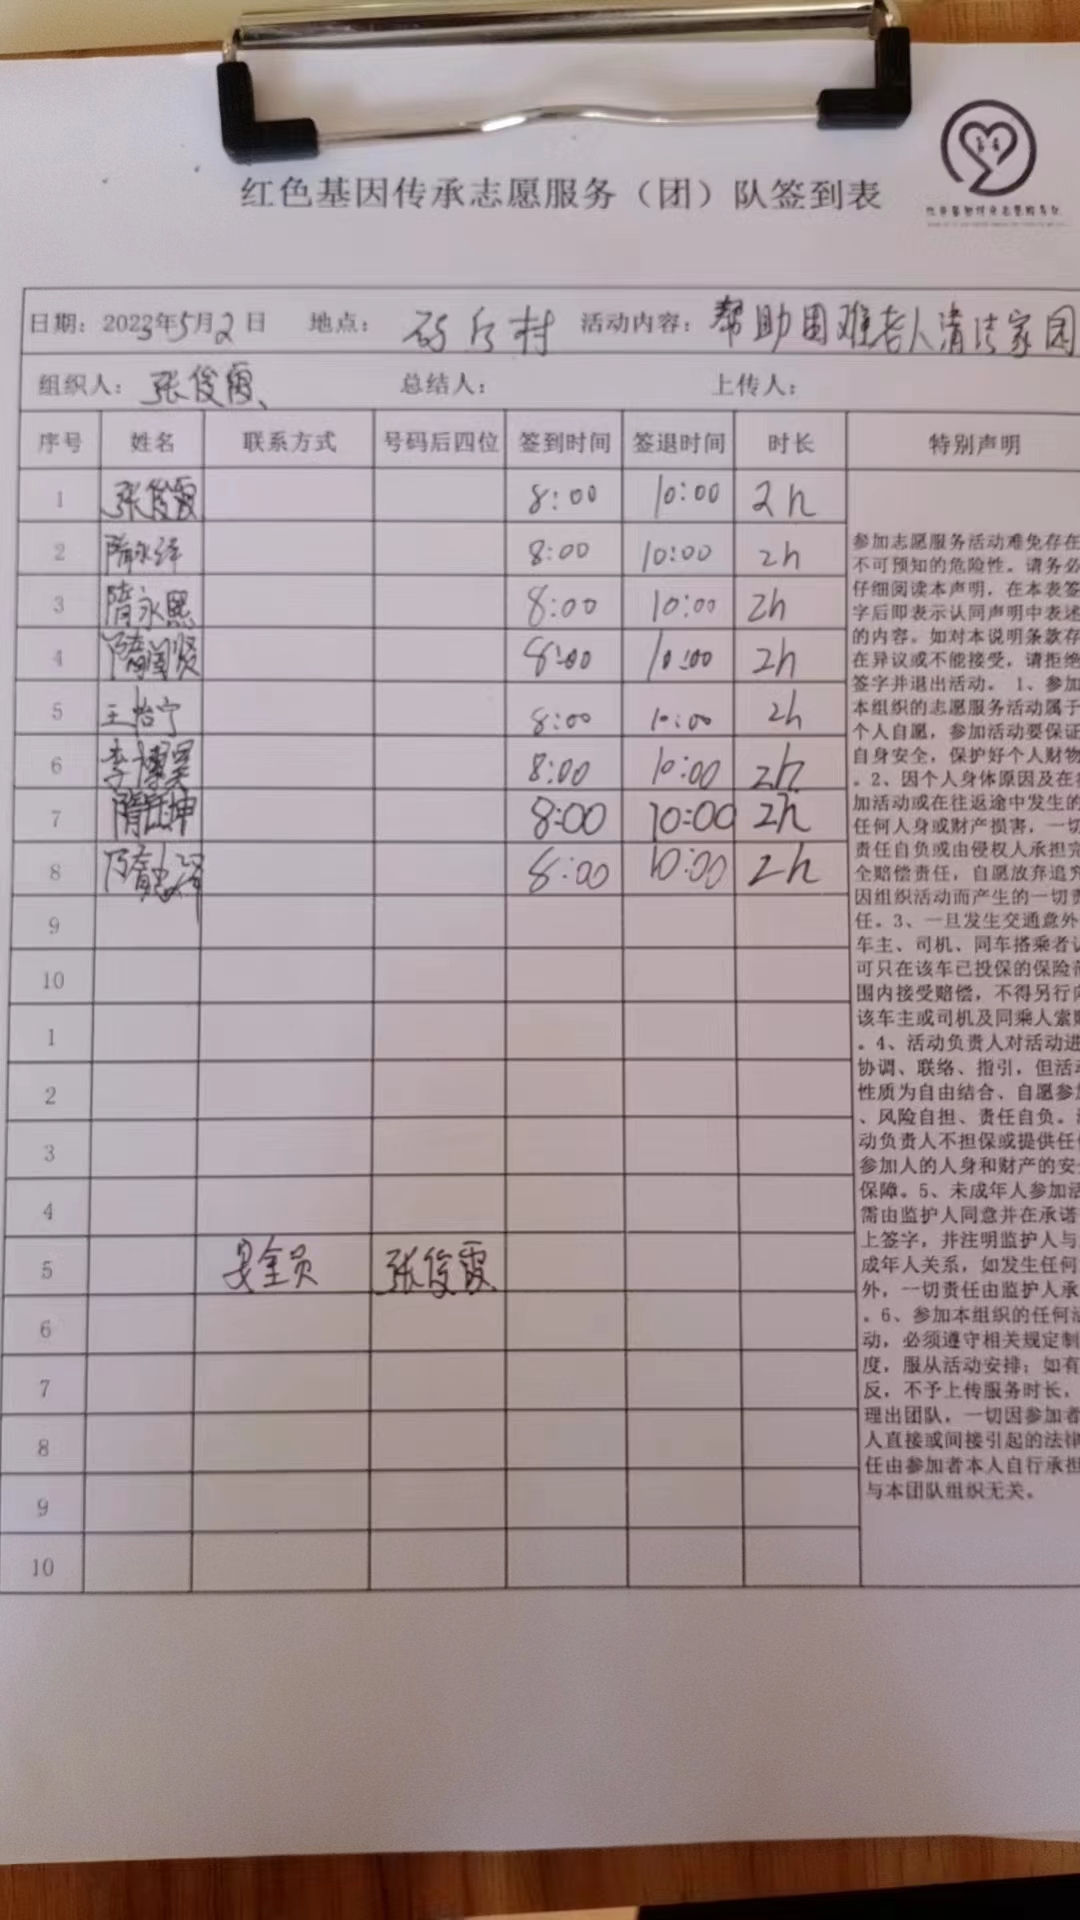 红色基因传承志愿服务（团）队签到表
日期：2023年5月2日 地点： 后村 活动内容：帮助困难老人清洁家园
组织人：张俊霞、 总结人： 上传人：
序号 姓名 联系方式 号码后四位 签到时间 签退时间 时长 特别声明
1 张俊霞 8:00 10:00 2h
2 隋永泽 8:00 10:00 2h
3 隋永熙 8:00 10:00 2h
4 隋闰贤 8:00 10:00 2h
5 王怡宁 8:00 10:00 2h
6 李博昊 8:00 10:00 2h
7 隋 坤 8:00 10:00 2h
8 隋 泽 8:00 10:00 2h
9
10
1
2
3
4
5 安全员 张俊霞
6
7
8
9
10
参加志愿服务活动难免存在
不可预知的危险性。请务必
仔细阅读本声明，在本表签
字后即表示认同声明中表述
的内容。如对本说明条款存
在异议或不能接受，请拒绝
签字并退出活动。 1、参加
本组织的志愿服务活动属于
个人自愿，参加活动要保证
自身安全，保护好个人财物
。2、因个人身体原因及在
加活动或在往返途中发生的
任何人身或财产损害，一切
责任自负或由侵权人承担完
全赔偿责任，自愿放弃追究
因组织活动而产生的一切责
任。3、一旦发生交通意外
车主、司机、同车搭乘者
可只在该车已投保的保险范
围内接受赔偿，不得另行向
该车主或司机及同乘人索赔
。4、活动负责人对活动进
协调、联络、指引，但活动
性质为自由结合、自愿参加
、风险自担、责任自负。
动负责人不担保或提供任何
参加人的人身和财产的安全
保障。5、未成年人参加活
需由监护人同意并在承诺
上签字，并注明监护人与
成年人关系，如发生任何
外，一切责任由监护人承
。6、参加本组织的任何活
动，必须遵守相关规定制
度，服从活动安排；如有
反，不予上传服务时长，
理出团队，一切因参加者
人直接或间接引起的法律
任由参加者本人自行承担
与本团队组织无关。